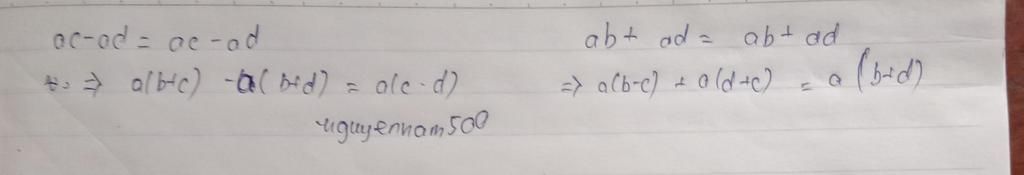 ac-ad = ac-ad
ab+ ad = ab+ ad
⇒ a(b+c) -a(b+d) = a(c-d)
⇒ a(b-c) + a(d+c) = a(b+d)
nguyennam500